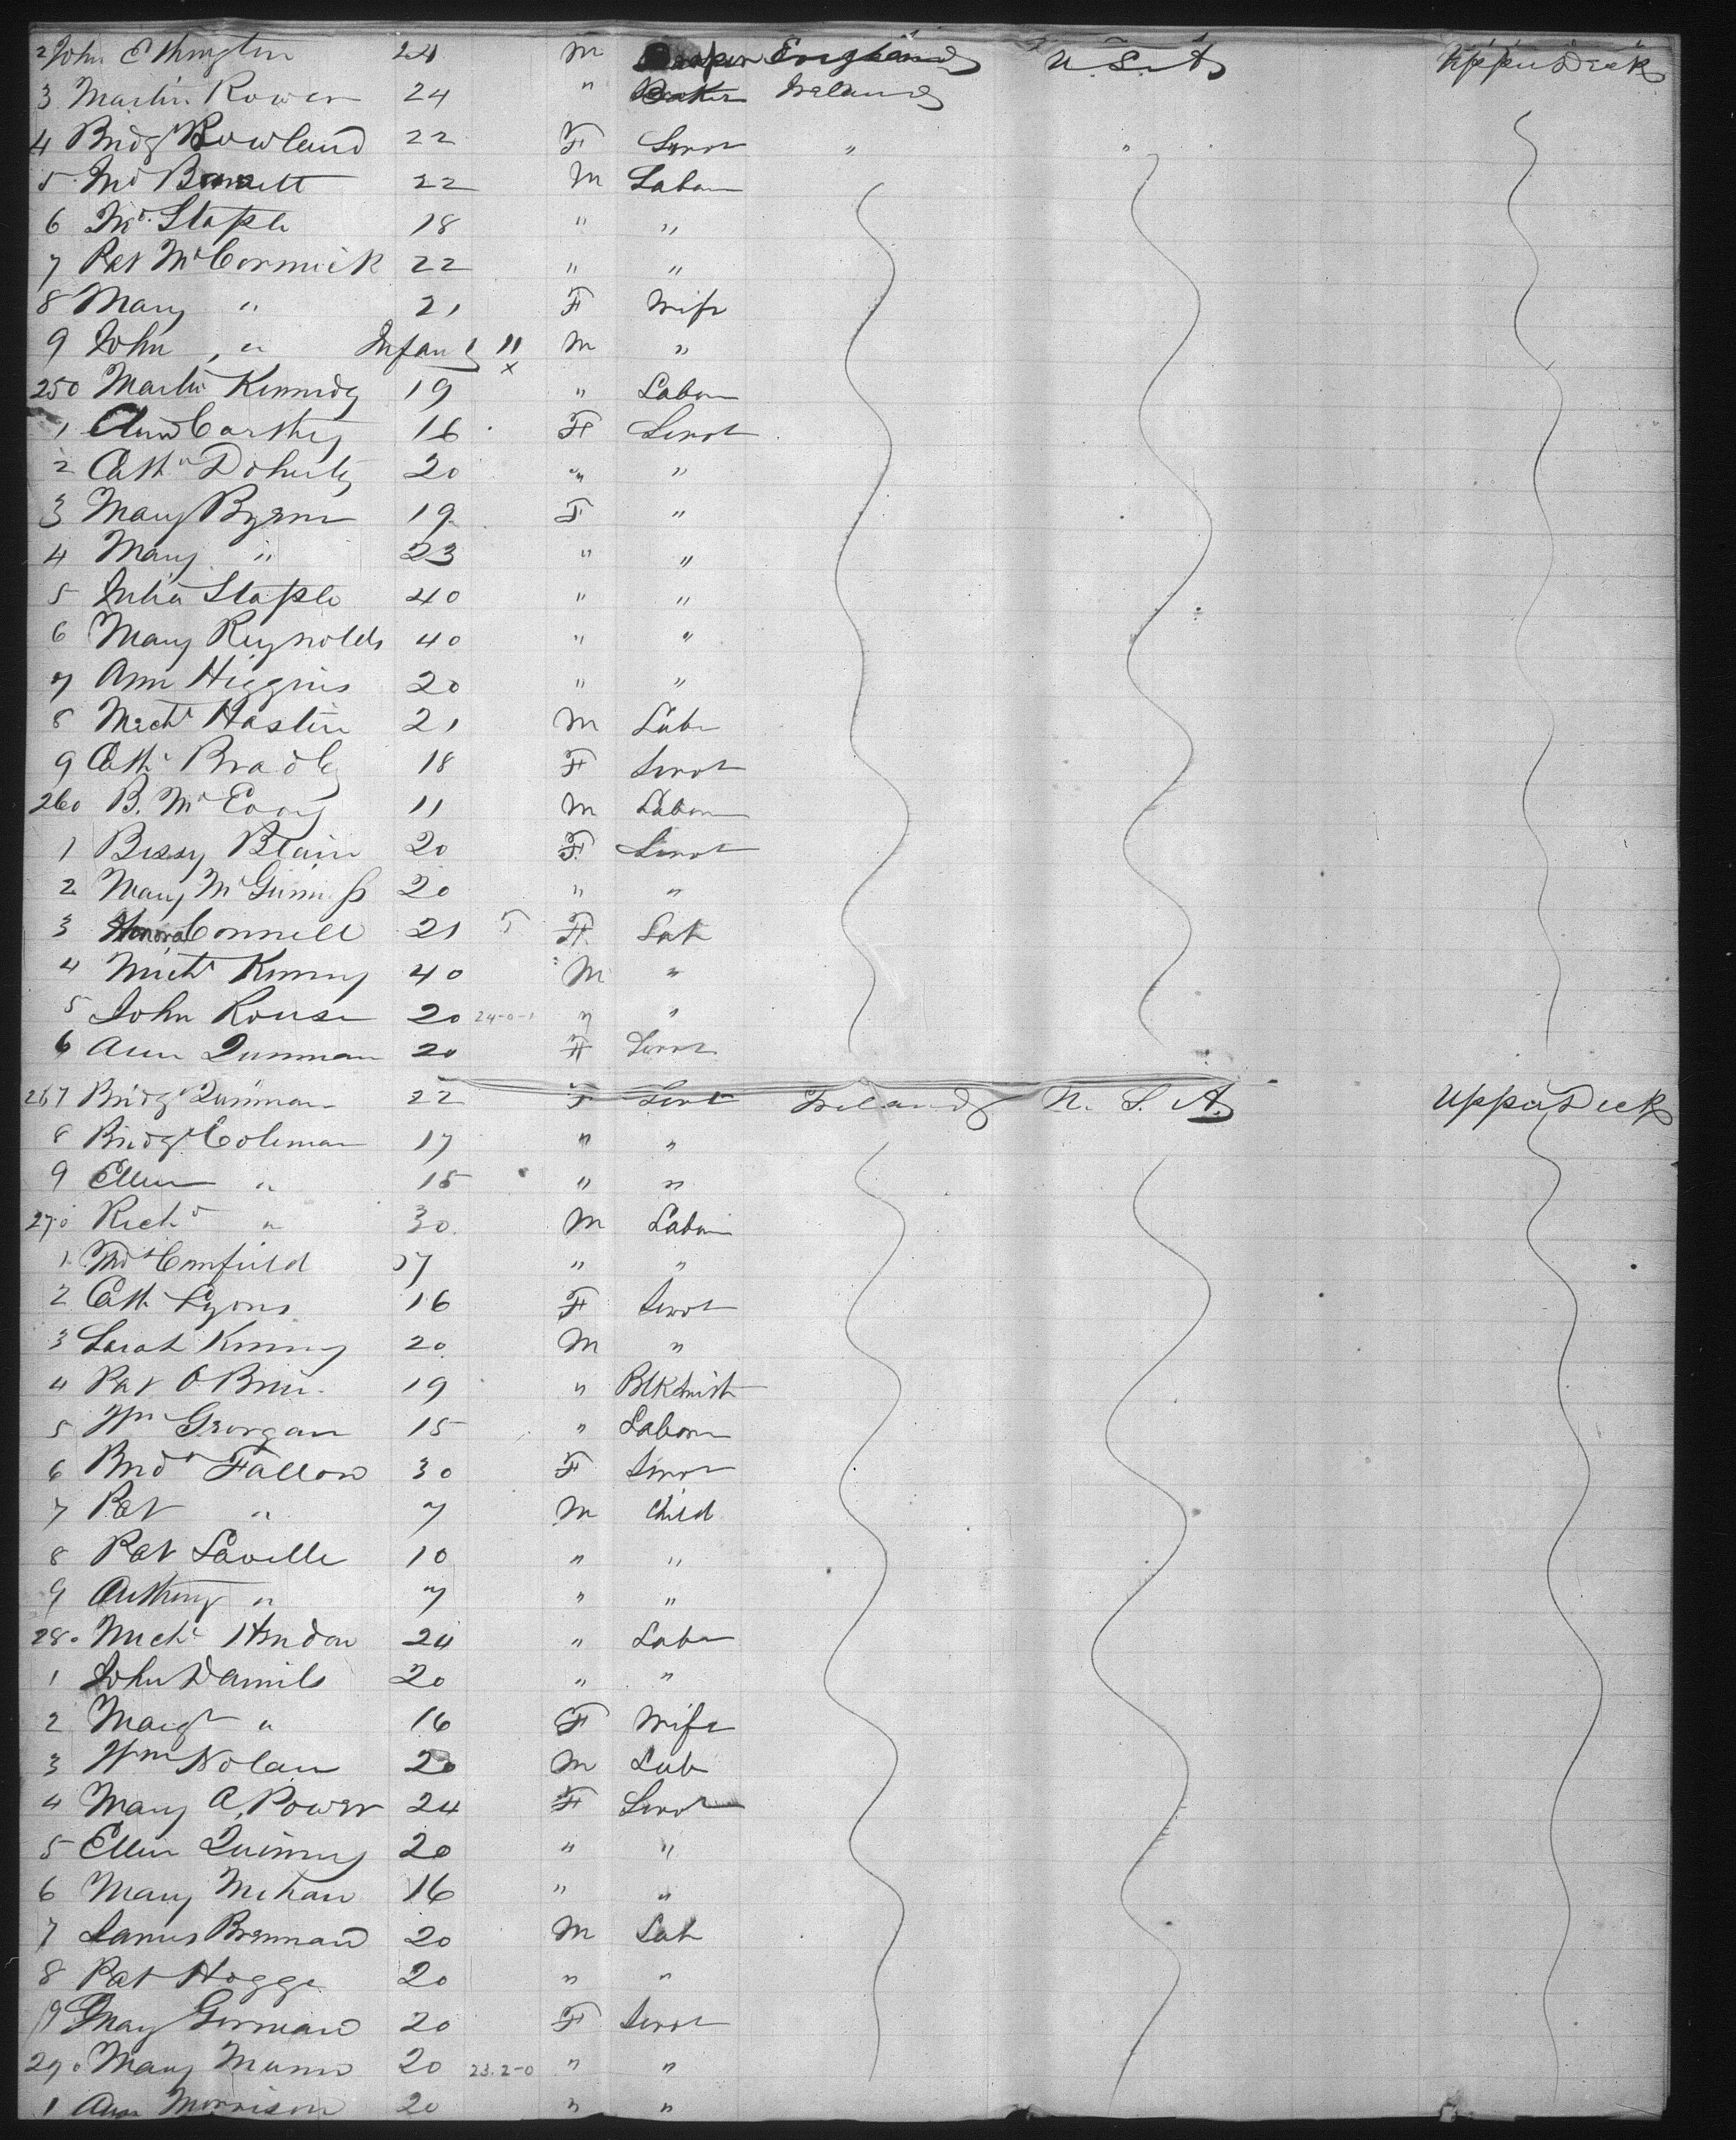 2 John Ethington 24 M England U.S.A. Upper Deck
3 Martin Rowen 24 " Baker Ireland
4 Bridgt Rowland 22 F Servt " "
5 22 M Labor
6 Staple 18 " "
7 Pat McCormick 22 " "
8 Mary " 21 F Wife
9 John " Infant 11 M "
x
250 Martin Kennedy 19 " Labor
1 Ann Carthy 16 F Servt
2 Cathn Doherty 20 " "
3 Mary Byrne 19 F "
4 Mary " 23 " "
5 Julia Staple 40 " "
6 Mary Reynolds 40 " "
7 Ann Higgins 20 " "
8 Michl Hastin 21 M Labr
9 Cath Bradly 18 F Servt
260 B. McEvoy 11 M Labor
1 Bessy Blain 20 F Servt
2 Mary McGinniss 20 " "
3 Honora Connell 21 F F Lab
4 Michl Kenny 40 M "
5 John Rouse 20 24-0-1 " "
6 Ann Quinnan 20 F Servt
267 Bridgt Quinnan 22 F Servt Ireland U.S.A. Upper Deck
8 Bridgt Coleman 17 " "
9 Ellen " 15 " "
270 Richd " 30 M Labor
1 17 " "
2 Cath Lyons 16 F Servt
3 Sarah Kenny 20 M "
4 Pat O Brien 19 " Blksmith
5 Wm Georgan 15 " Labor
6 Bridt Fallon 30 F Servt
7 Pat " 7 M Child
8 Pat Lavelle 10 " "
9 Anthony " 7 " "
280 Michl 24 " Labr
1 John Daniels 20 " "
2 Margt " 16 F Wife
3 Wm Nolan 20 M Lab
4 Mary A. Power 24 F Servt
5 Ellen Quinny 20 " "
6 Mary Mehan 16 " "
7 James Brennan 20 M Lab
8 Pat Hogge 20 " "
9 Mary Gorman 20 F Servt
290 Mary Munn 20 23.2-0 " "
1 Ann Morrison 20 " "